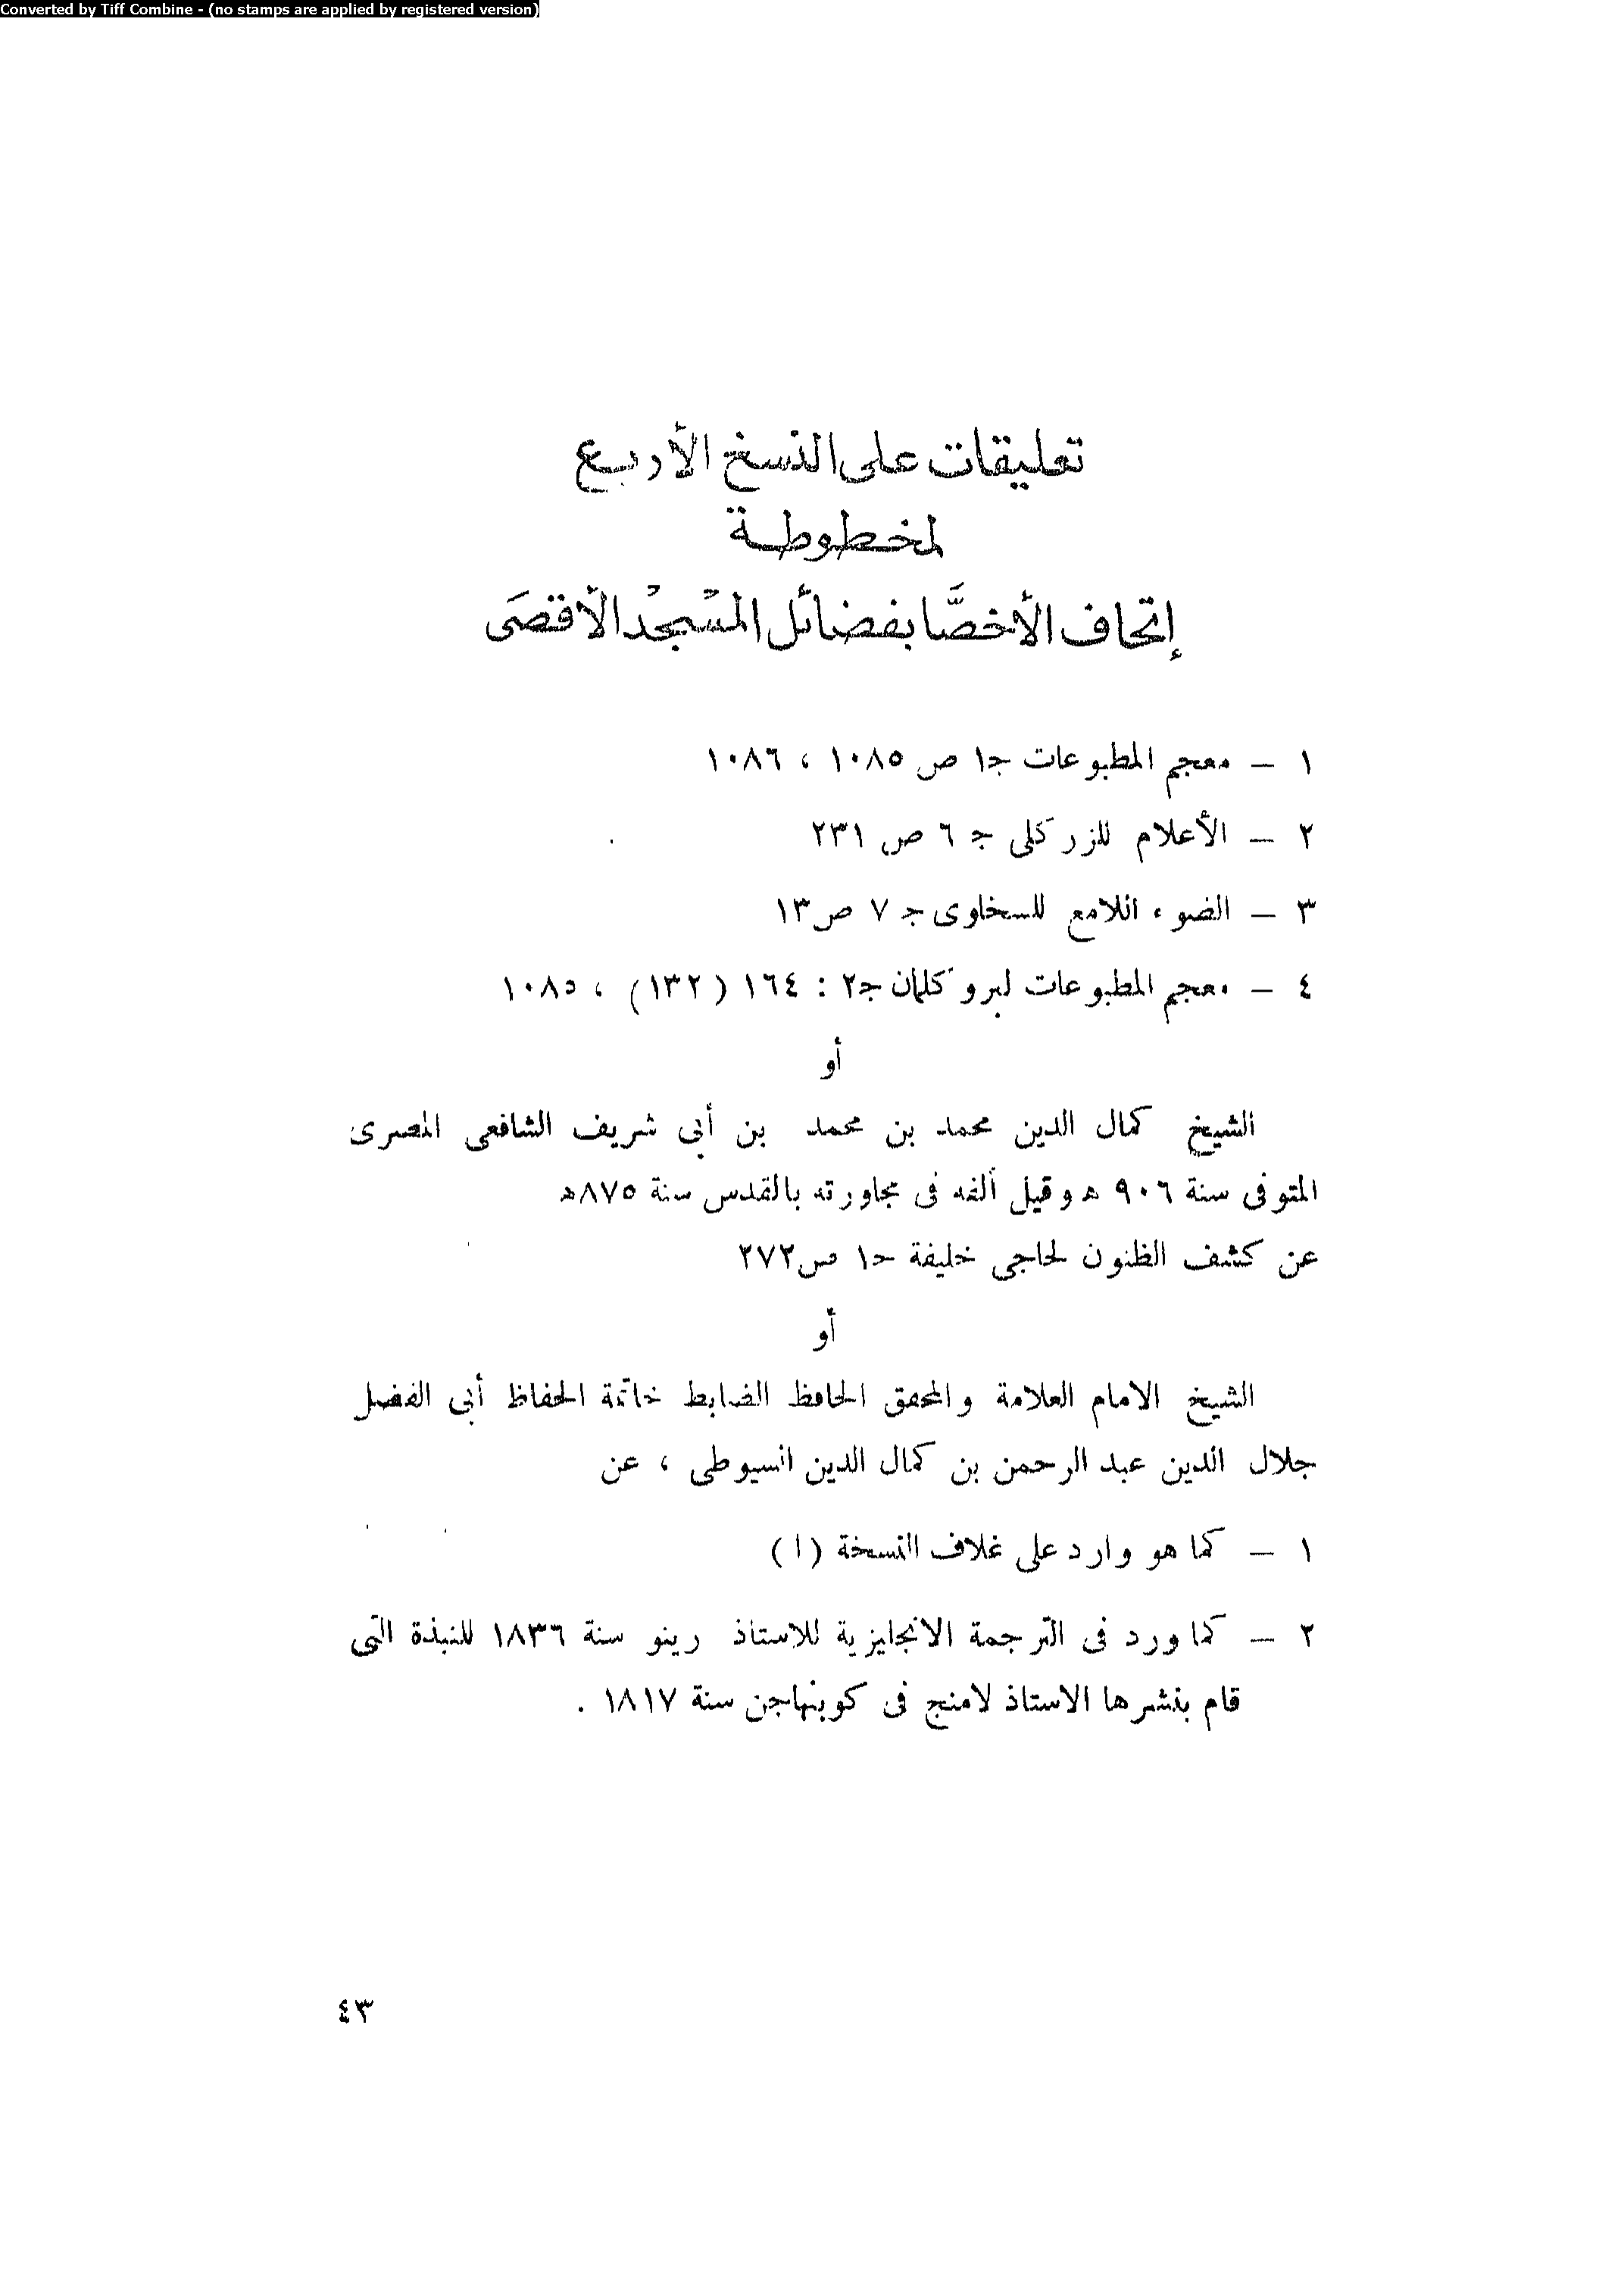 Converted by Tiff Combine - (no stamps are applied by registered version)
تعليقات على النسخ الأربع
لمخطوطة
إتحاف الأخصَّا بفضائل المسْجدْ الأقصَى
١ – معجم المطبوعات ج١ ص ١٠٨٥ ، ١٠٨٦
٢ – الأعلام للزركلى ج ٦ ص ٢٣١
٣ – الضوء اللامع للسخاوى ج ٧ ص١٣
٤ – معجم المطبوعات لبروكلمان ج٢ : ١٦٤ (١٣٢) ، ١٠٨٥
أو
الشيخ كمال الدين محمد بن محمد بن أبى شريف الشافعى المصرى
المتوفى سنة ٩٠٦ هـ وقيل ألفه فى مجاورته بالقدس سنة ٨٧٥هـ
عن كشف الظنون لحاجى خليفة ح١ ص٢٧٢
أو
الشيخ الامام العلامة والمحقق الحافظ الضابط خاتمة الحفاظ أبى الفضل
جلال الدين عبد الرحمن بن كمال الدين السيوطى ، عن
١ – كما هو وارد على غلاف النسخة (ا)
٢ – كما ورد فى الترجمة الانجليزية للاستاذ رينو سنة ١٨٣٦ للنبذة التى
قام بنشرها الاستاذ لامنج فى كوبنهاجن سنة ١٨١٧ .
٤٣